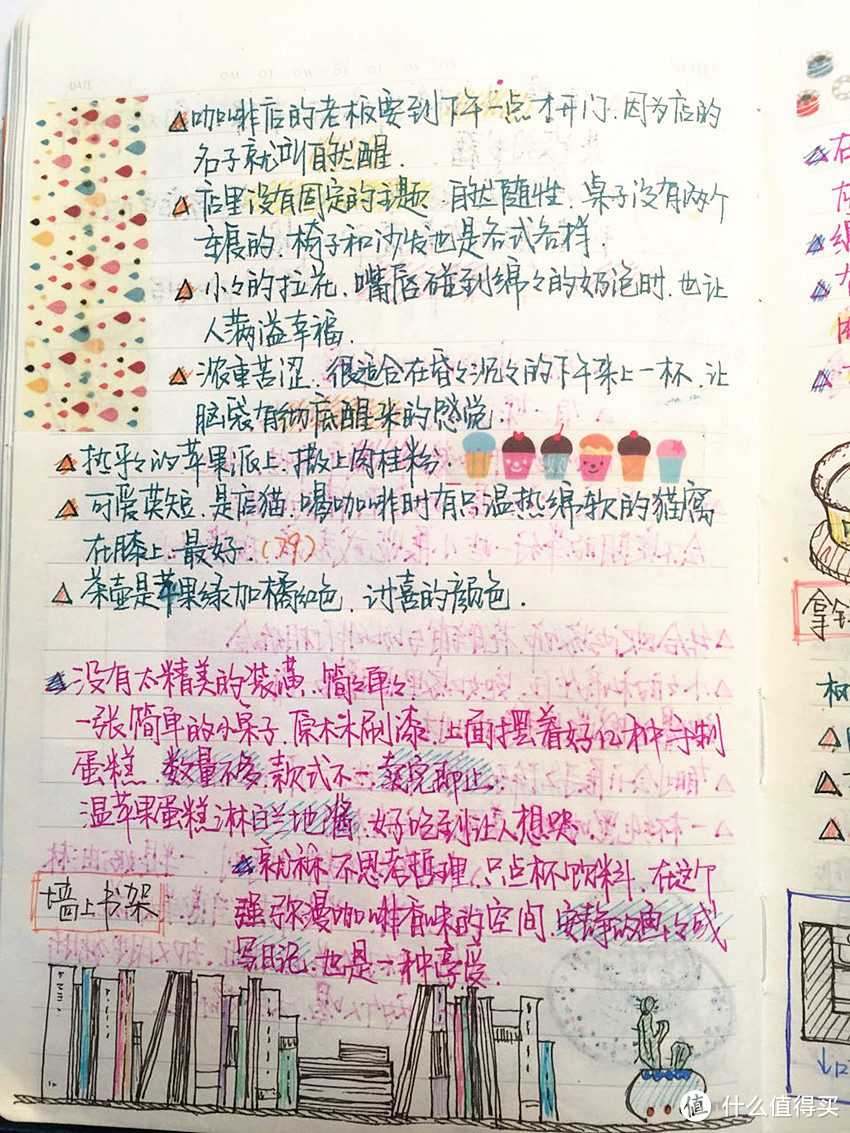 DATE
NOTES
咖啡店的老板要到下午一点才开门.因为店的
名字就叫自然醒.
店里没有固定的主题.自然随性.桌子没有两个
重复的.椅子和沙发也是各式各样.
小々的拉花.嘴唇碰到绵々的奶泡时.也让
人满溢幸福.
浓重苦涩.很适合在昏々沉々的下午来上一杯.让
脑袋有彻底醒来的感觉.
热乎々的苹果派上.撒上肉桂粉.
可爱英短.是店猫.喝咖啡时有只温热绵软的猫窝
在膝上.最好.(29)
茶壶是苹果绿加橘红色.讨喜的颜色.
没有太精美的装潢.简々单々
一张简单的小桌子.原木未刷漆.上面摆着好几种手制
蛋糕.数量不多.款式不一.卖完即止.
温苹果蛋糕淋白兰地酱.好吃到让人想哭.
就算不思考哲理.只点杯饮料.在这个
强弥漫咖啡香味的空间.安静的画々或
写日记.也是一种享受.
墙上书架
拿铁
值 什么值得买